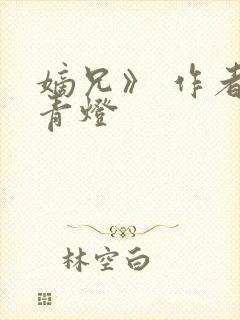 嫡兄》 作者
青燈
林空白